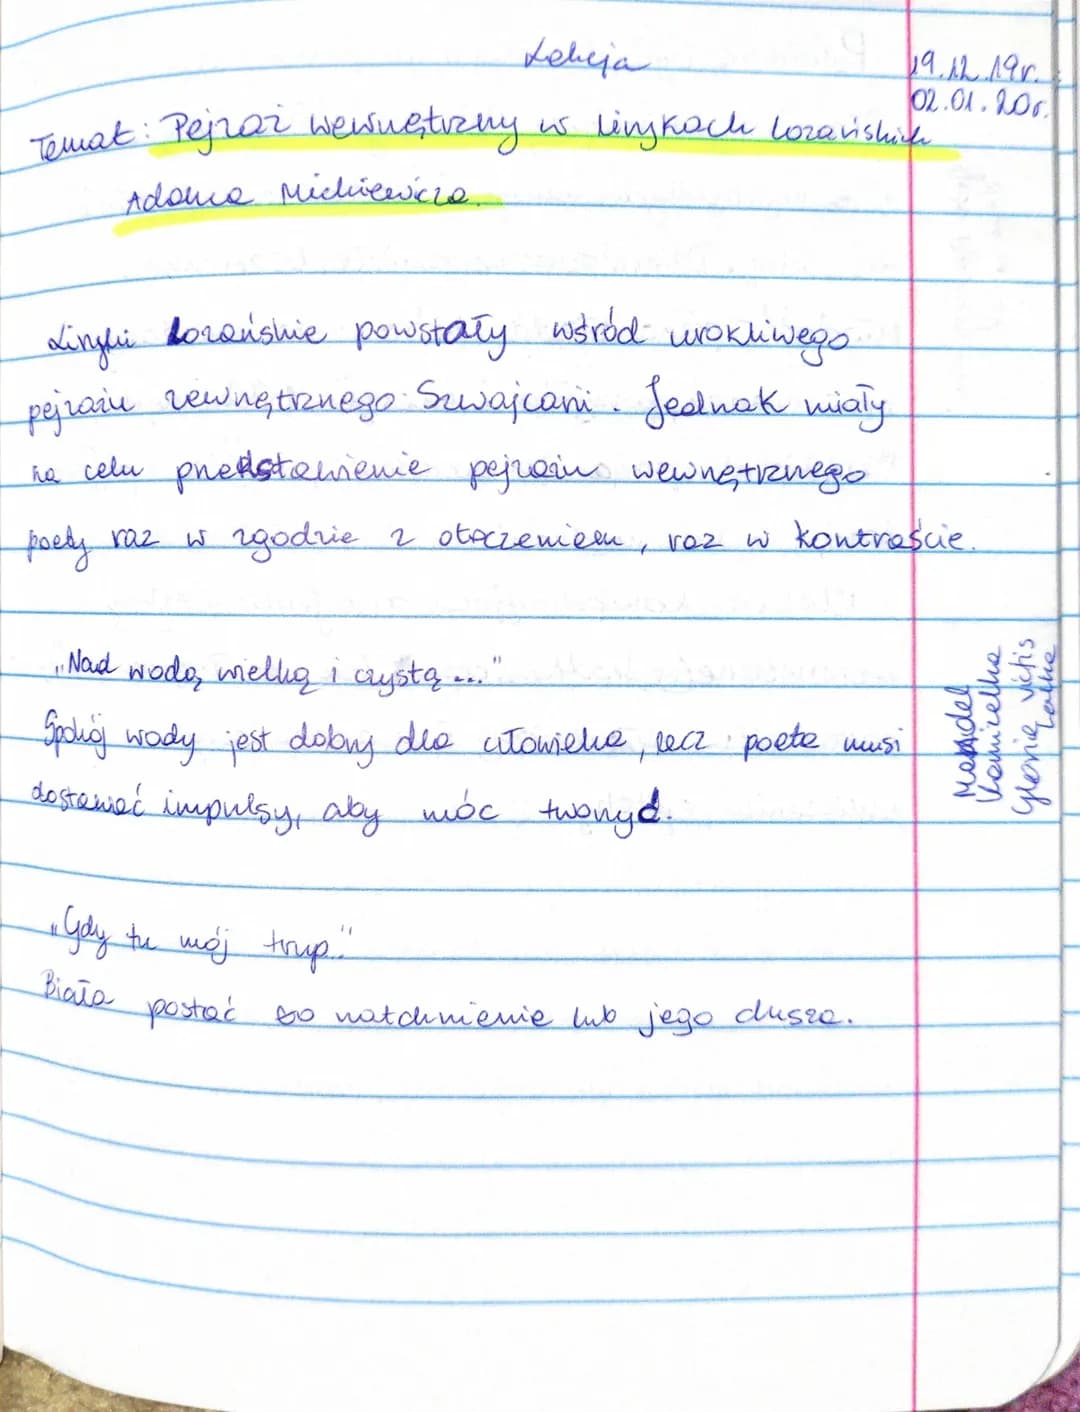 Lekcja
19.12.19r.
02.01.20r.
Temat: Pejzaż wewnętrzny w lirykach lozańskich
Adama Mickiewicza.
Liryki lozańskie powstały wśród urokliwego
pejzażu zewnętrznego Szwajcarii. Jednak miały
na celu przedstawienie pejzażu wewnętrznego
poety raz w zgodzie z otoczeniem, raz w kontraście.
„Nad wodą wielką i czystą..."
Spokój wody jest dobry dla człowieka, lecz poeta musi
dostawać impulsy, aby móc tworzyć.
„Gdy tu mój trup.."
Biała postać to natchnienie lub jego dusza.
Mendel
Kamizelka
Gloria victis
Lalka